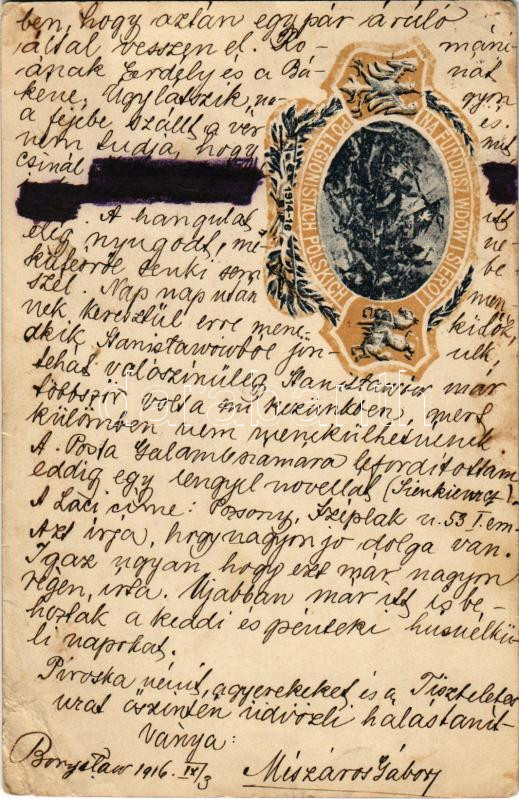 ben, hogy aztán egy pár áruló
által vesszen el. Romániának
Erdély és a Bánát
kene, Úgy látszik, nagyon
a fejébe szállt a vér és
nem tudja, hogy mit
csinál
A hangulat itt
elég nyugodt, me
senki sem be
szél. Nap nap után men
nek keresztül erre menekülők,
akik Stanisławowból jön
tehát valószinüleg Stanisławów már
többször volt a mi kezünkben, mert
külömben nem menekülhetnének.
A Posta Galamb számára lefordítottam
eddig egy lengyel novellát (Sienkiewicz).
A Laci címe: Pozsony, Széplak u. 53 I. em.
Azt írja, hogy nagyon jó dolga van.
Igaz ugyan, hogy ezt már nagyon
régen, írta. Újabban már itt is be-
hozták a keddi és pénteki husnélkü-
li napokat.
Piroska nénit, a gyerekeket és a Tiszteletes
urat őszintén üdvözli hálás tanít-
ványa:
Borysław 1916. IX/3 Mészáros Gábor
NA FUNDUSZ WDÓW I SIERÓT
PO LEGIONISTACH POLSKICH
1914-16
darabanth